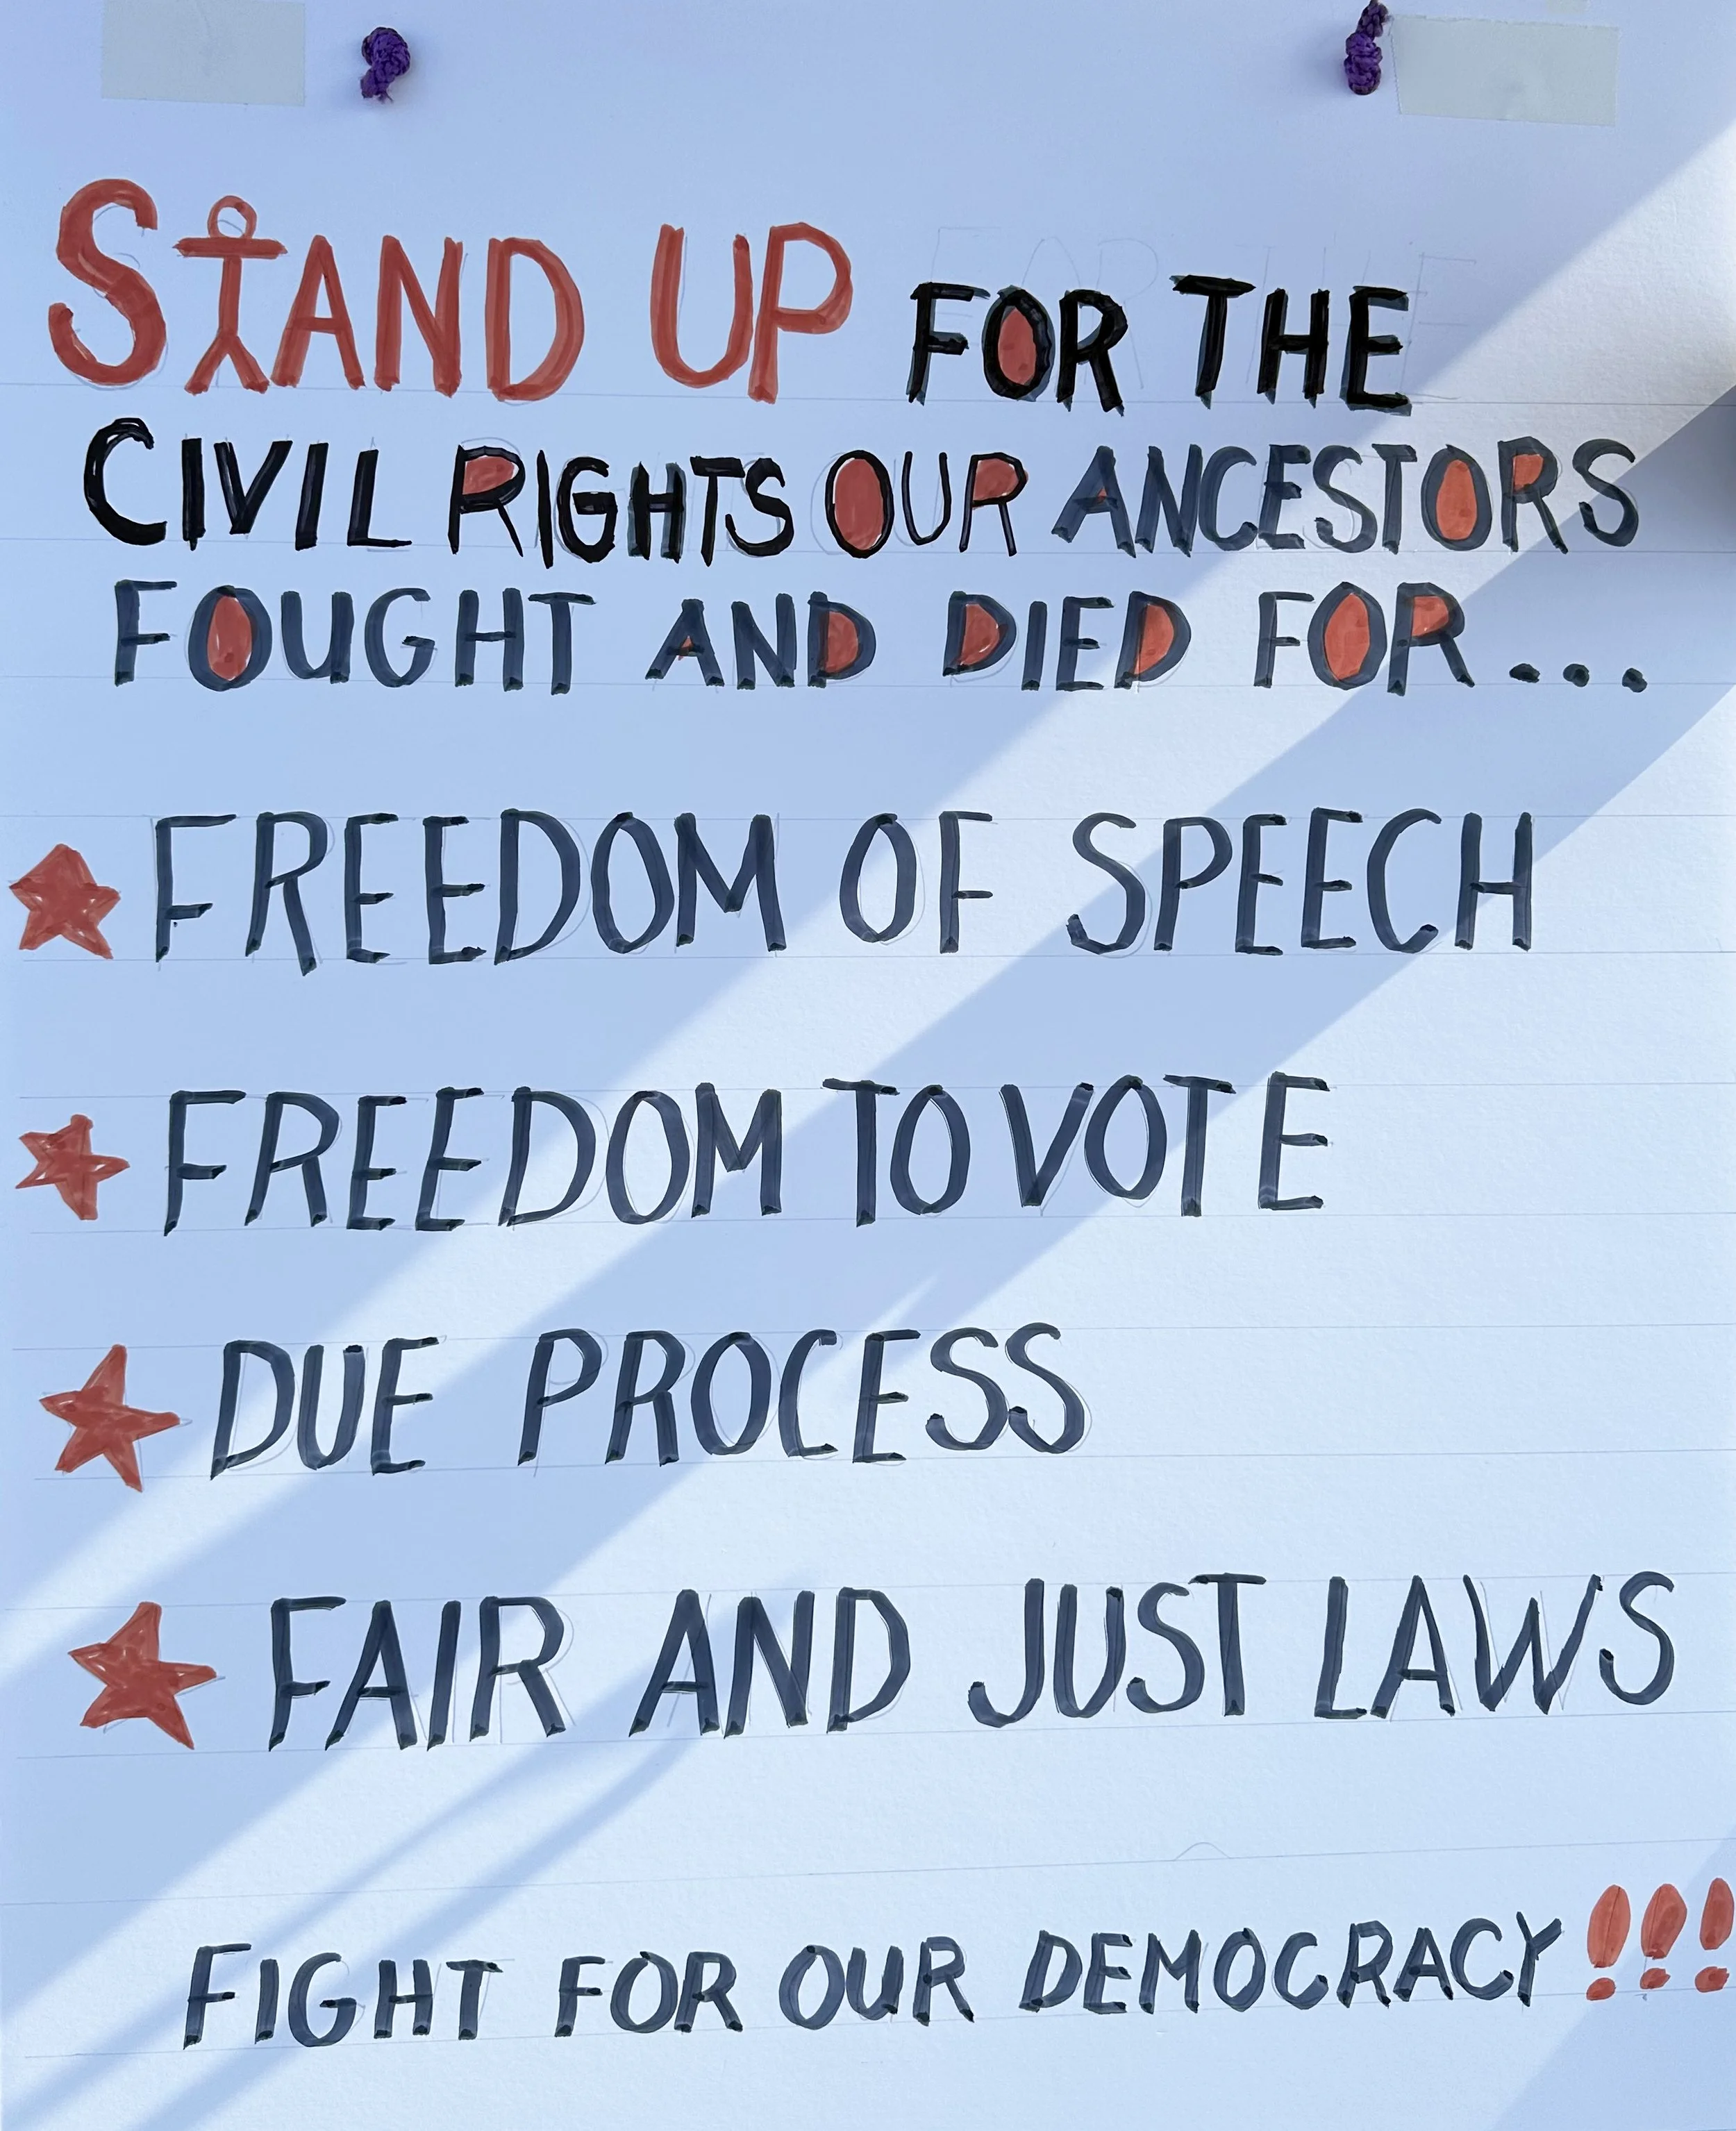 STAND UP FOR THE
CIVIL RIGHTS OUR ANCESTORS
FOUGHT AND DIED FOR...
FREEDOM OF SPEECH
FREEDOM TO VOTE
DUE PROCESS
FAIR AND JUST LAWS
FIGHT FOR OUR DEMOCRACY!!!